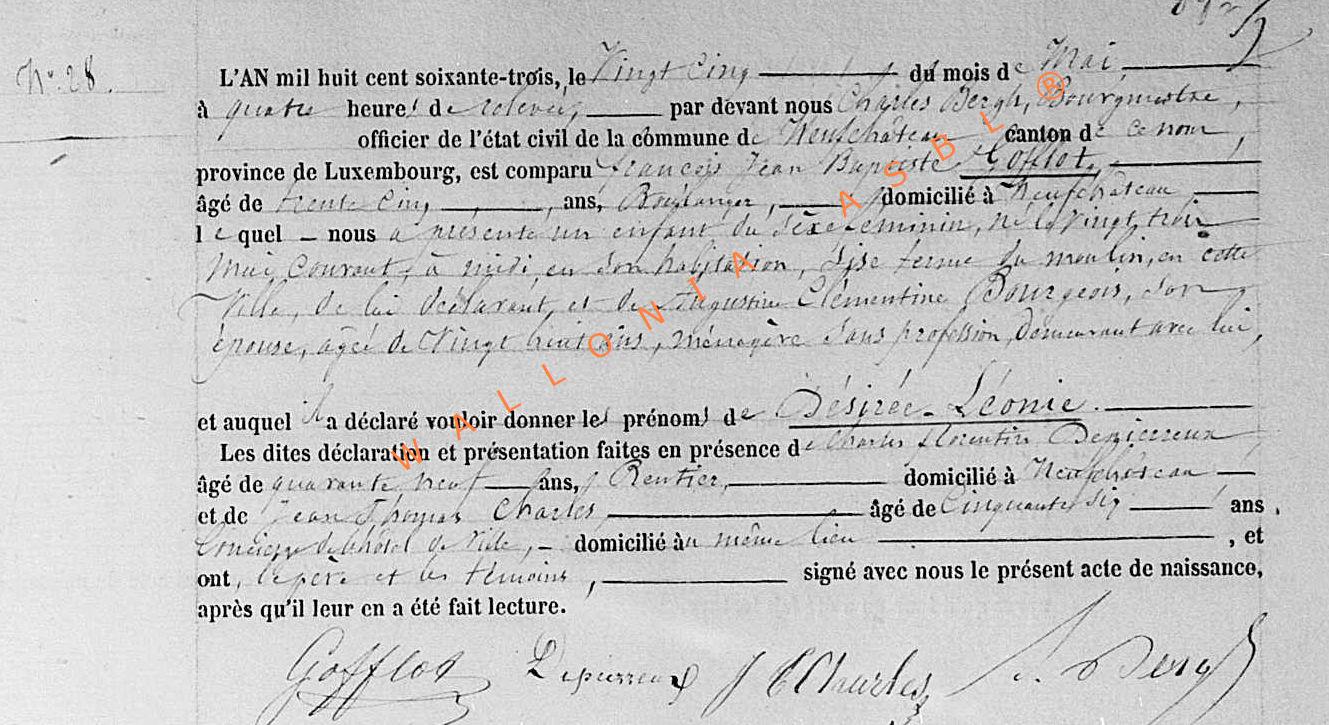 Nº 28.
L'AN mil huit cent soixante-trois, le Vingt Cinq du mois de Mai,
à quatre heures de relevée, par devant nous Charles Bergh, Bourgmestre,
officier de l'état civil de la commune de Neufchâteau canton de ce nom,
province de Luxembourg, est comparu François Jean Baptiste Gofflot,
âgé de trente Cinq, ans, Boulanger, domicilié à Neufchâteau
le quel nous a présenté un enfant du sèxe feminin, né le Vingt trois
Mai Courant, à midi, en son habitation, sise ferme du moulin, en cette
Ville, de lui déclarant, et de Augustine Clémentine Bourgeois, son
épouse, agée de Vingt huit ans, ménagère sans profession, demeurant avec lui,
et auquel il a déclaré vouloir donner les prénoms de Désirée-Léonie.
Les dites déclaration et présentation faites en présence de Charles florentin Depierreux
âgé de quarante neuf ans, Rentier, domicilié à Neufchâteau
et de Jean Thomas Charles, âgé de Cinquante six ans,
Concierge de l'hôtel de Ville, - domicilié au même lieu, et
ont, le père et les témoins, signé avec nous le présent acte de naissance,
après qu'il leur en a été fait lecture.
Gofflot Depierreux J T Charles Bergh
WALLONIA ASBL ®